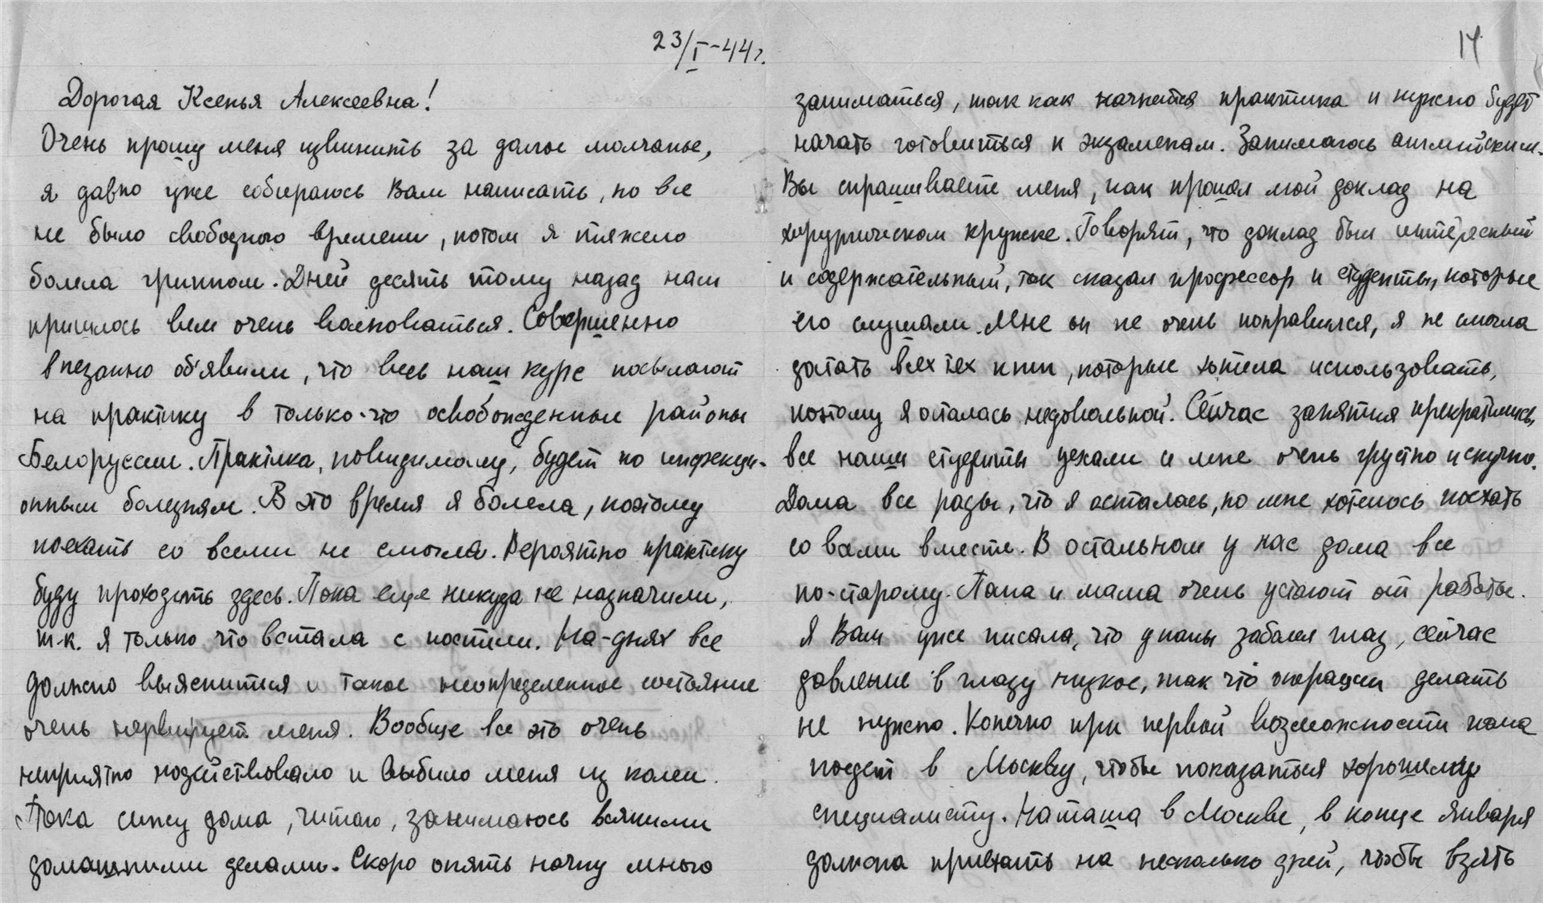 23/I-44г.
Дорогая Ксенья Алексеевна!
Очень прошу меня извинить за долгое молчанье,
я давно уже собираюсь Вам написать, но все
не было свободного времени, потом я тяжело
болела гриппом. Дней десять тому назад нам
пришлось всем очень волноваться. Совершенно
внезапно об'явили, что весь наш курс посылают
на практику в только-что освобожденные районы
Белоруссии. Практика, повидимому, будет по инфекци-
онным болезням. В это время я болела, поэтому
поехать со всеми не смогла. Вероятно практику
буду проходить здесь. Пока еще никуда не назначили,
т.к. я только что встала с постели. На-днях все
должно выясниться и такое неопределенное состояние
очень нервирует меня. Вообще все это очень
неприятно подействовало и выбило меня из колеи.
Пока сижу дома, читаю, занимаюсь всякими
домашними делами. Скоро опять начну много
14
заниматься, так как начнется практика и нужно будет
начать готовиться к экзаменам. Занимаюсь английским.
Вы спрашиваете меня, как прошел мой доклад на
хирургическом кружке. Говорят, что доклад был интересный
и содержательный, так сказал профессор и студенты, которые
его слушали. Мне он не очень понравился, я не смогла
достать всех тех книг, которые хотела использовать,
поэтому я осталась недовольной. Сейчас занятия прекратились,
все наши студенты уехали и мне очень грустно и скучно.
Дома все рады, что я осталась, но мне хотелось поехать
со всеми вместе. В остальном у нас дома все
по-старому. Папа и мама очень устают от работы.
Я Вам уже писала, что у папы заболел глаз, сейчас
давление в глазу низкое, так что операции делать
не нужно. Конечно при первой возможности папа
поедет в Москву, чтобы показаться хорошему
специалисту. Наташа в Москве, в конце января
должна приехать на несколько дней, чтобы взять